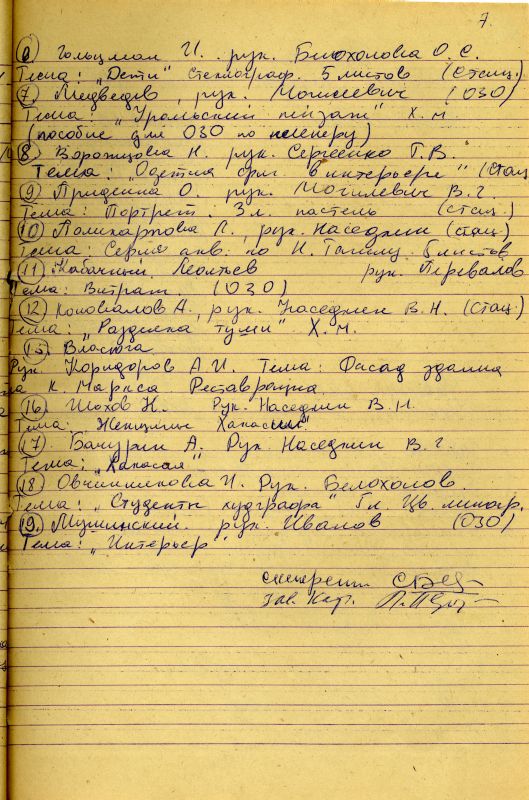 7.
6) Гольцман И. рук. Белохоловка О. С.
Тема: „Дети" Стеклограф. 5 листов (Стац.)
7. Медведев, рук. Могилевич (ОЗО)
Тема: „Уральский пейзаж" Х.М.
(пособие для ОЗО по пленеру)
8) Ворожцова Н. рук. Сергеенко Т.В.
Тема: „Одетая фиг. в интерьере" (Стац
9) Приденна О. рук. Могилевич В.Г.
Тема: Портрет. 3 л. пастель (стац.)
10) Поликарпова Л., рук. Наседкин (стац.)
Тема: Серия акв. по Н. Тагилу 6 листов
11) Кабачкин, Леонтьев рук. Перевалов
Тема: Витраж. (ОЗО)
12) Коновалов А., рук. Наседкин В.Н. (Стац.)
Тема: „Разделка туши" Х.М.
15) Власюга
Рук. Коридоров А.И. Тема: Фасад здания
на К. Маркса Реставрация.
16) Шохов Н. Рук. Наседкин В.Н.
Тема: „Женщины Хакассии"
17) Бачурин А. Рук. Наседкин В.Г.
Тема: „Хакасая"
18) Овчинникова И. Рук. Белохолов.
Тема: „Студенты худграфа" Гл. Цв. линогр.
19. Мушинский. рук. Иванов (ОЗО)
Тема: „Интерьер"
секретарь
Зав. Каф.